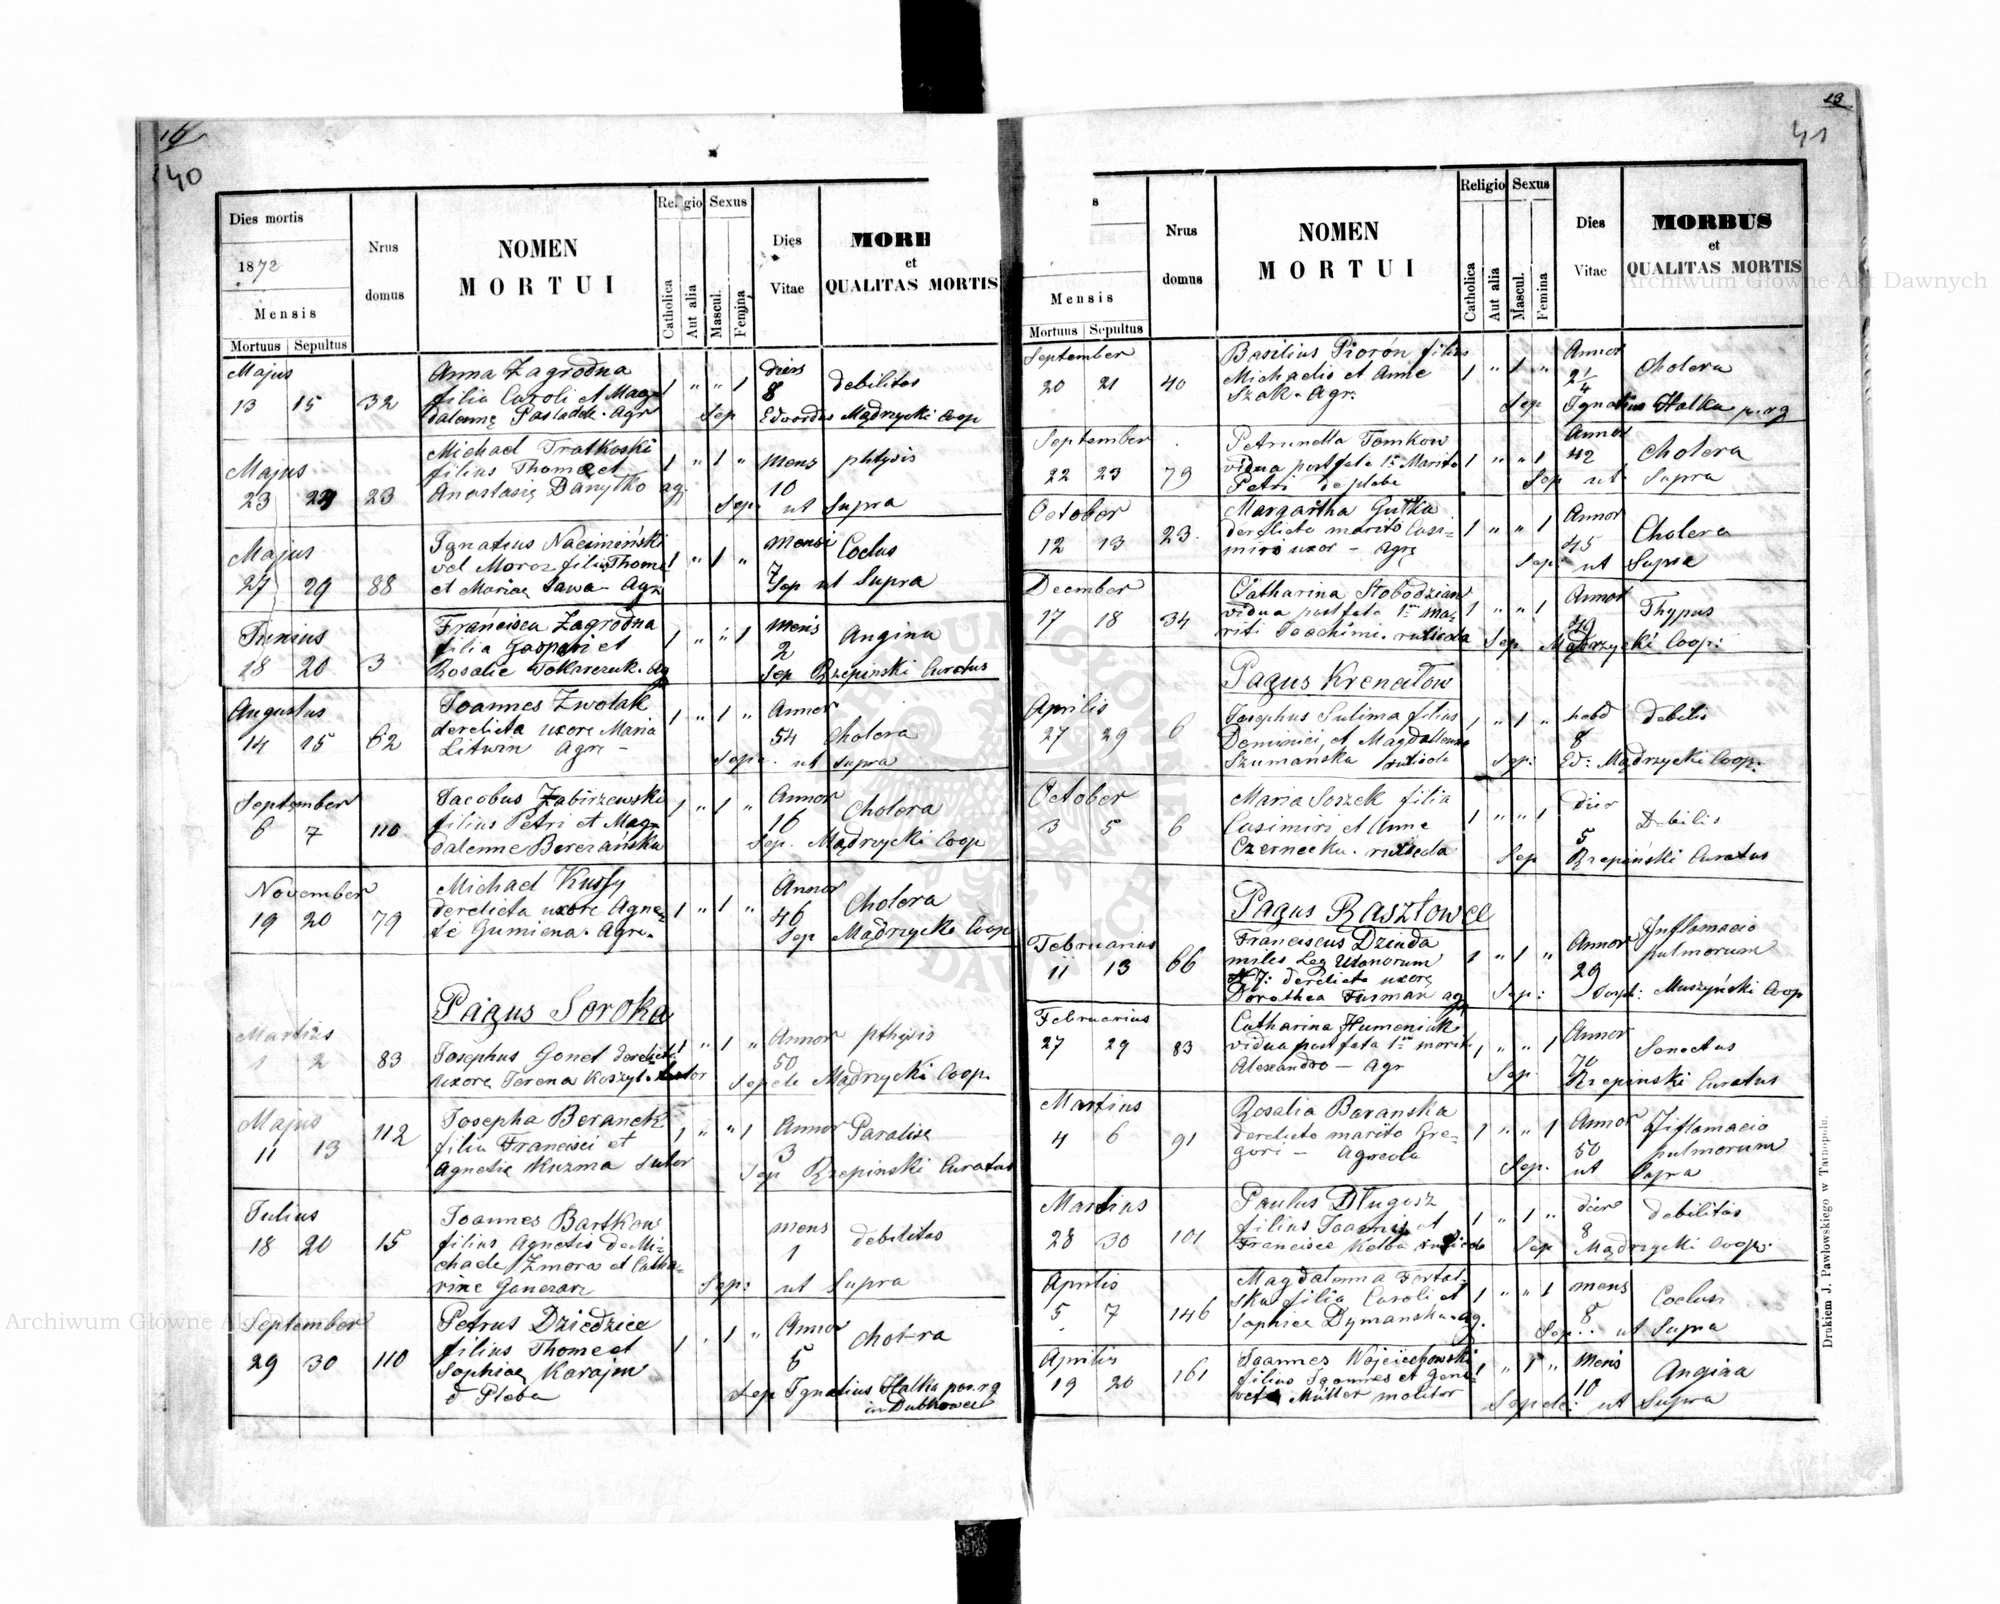 40
Dies mortis
1872
Mensis
Mortuus Sepultus
Nrus
domus
NOMEN
MORTUI
Religio Sexus
Catholica
Aut alia
Mascul.
Femina
Dies
Vitae
MORB
et
QUALITAS MORTIS
Majus
13 15 32
Anna Zagrodna
filia Caroli et Mag
dalenę Agr
1 " " 1
dies
8
debilitas
Sep Edwardus Mądrzycki Coop
Majus
23 23
Michael Tratkoski
filius Thome et
Anastasię Danyłko ag:
1 " 1 "
Mens
10
phtysis
Sep: ut Supra
Majus
27 29 88
Ignatius Naciminński
vel Moroz filius Thome
et Mariae Sawa - Agr
1 " 1 "
Mensi
7
Coclus
Sep ut Supra
Junius
18 20 3
Francisca Zagrodna
filia Gaspari et
Rosalie Tokarczuk. ag
1 " " 1
Mens
2
Angina
Sep Rzepinski Curatus
Augustus
14 15 62
Joannes Zwolak
derelicta uxore Maria
Litwin Agr -
1 " 1 "
Annor
54
Cholera
Sep. ut supra
September
6 7 110
Jacobus Zabirzewski
filius Petri et Mag
dalenne Berezańska
1 " 1 "
Annor
16
Cholera
Sep. Mądrzycki Coop
November
19 20 79
Michael Kussy
derelicta uxore Agne
te Gumiena. Agr.
1 " 1 "
Annor
46
Cholera
Sep Mądrzycki Coop
Pagus Soroka
Martius
1 2 83
Josephus Gonet derelicta
uxore Terena
1 " 1 "
Annor
50
pthysis
Sepele Mądrzycki Coop.
Majus
11 13 112
Josepha Beranek
filia Francisci et
Agnetie Kuzma sutor
1 " " 1
Annor
3
Paralise
Sep Rzepinski Curatus
Julius
18 20 15
Joannes Bartkow
filius Agnetis de Mi-
chaele Zmora et Catha-
rine Ganczarz
mens
1
debilitas
Sep: ut Supra
September
29 30 110
Petrus Dziedzic
filius Thome et
Sophiae Karajm
d Pleba
1 " 1 "
Annor
5
Cholera
Sep Ignatius Hałka par. rg
in Dubkowce
41
Mensis
Mortuus Sepultus
Nrus
domus
NOMEN
MORTUI
Religio Sexus
Catholica
Aut alia
Mascul.
Femina
Dies
Vitae
MORBUS
et
QUALITAS MORTIS
September
20 21 40
Basilius Piorón filius
Michaelis et Anne
Szak. Agr.
1 " 1 "
Annor
2 1/4
Cholera
Sep Ignatius Hałka p. rg
September
22 23 79
Petrunella Tomkow
vidua post fata 1i Marito
Petri de plebe
1 " " 1
Annor
42
Cholera
Sep ut Supra
October
12 13 23
Margartha Gutka
derelicto marito Casi-
miro uxor - Agr
1 " " 1
Annor
45
Cholera
Sep: ut Supra
December
17 18 34
Catharina Słobodzian
vidua post fata 1mi Ma-
riti Joachimi. rusticola
1 " " 1
Annor
Thypus
Sep Mądrzycki Coop:
Pagus Krenciłow
Aprilis
27 29 6
Josephus Sulima filius
Dominici, et Magdallenne
Szumańska
1 " 1 "
hebd
8
debilis
Sep: Ed: Mądrzycki Coop.
October
3 5 6
Maria Soszek filia
Casimiri et Anne
Czernecka.
1 " " 1
dier
5
Debilis
Sep Rzepiński Curatus
Pagus Rasztowce
Februarius
11 13 66
Franciscus Dzinda
miles Leg Ulanorum
N 7: derelicta uxorę
Dorothea Furman ag
1 " 1 "
Annor
29
Inflamacio
pulmorum
Sep: Joseph: Muszyński Coop
Februarius
27 29 83
Catharina Humeniuk
vidua post fata 1mi morit
Alexandro - Agr
1 " " 1
Annor
70
Senectus
Sep. Rzepinski Curatus
Martius
4 6 91
Rosalia Baranska
derelicto marito Gre-
gori - Agricola
1 " " 1
Annor
50
Iflamacio
pulmorum
Sep. ut Supra
Martius
28 30 101
Paulus Długosz
filius Joannis et
Francisce Kelba
1 " 1 "
dier
8
debilitas
Sep Mądrzycki Coop.
Aprilis
5 7 146
Magdalenna
ska filia Caroli et
Sophiee Dymanska. ag.
1 " " 1
mens
8
Coclus
Sep.. ut Supra
Aprilis
19 20 161
Joannes Wojciechowski
filius Joannes et Geno
vefa Müller molitor
1 " 1 "
Mens
10
Angina
Sepele: ut Supra
Drukiem J. Pawłowskiego w Tarnopolu.
Archiwum Główne Akt Dawnych
Archiwum Główne Akt
ARCHIWUM GŁÓWNE AKT DAWNYCH